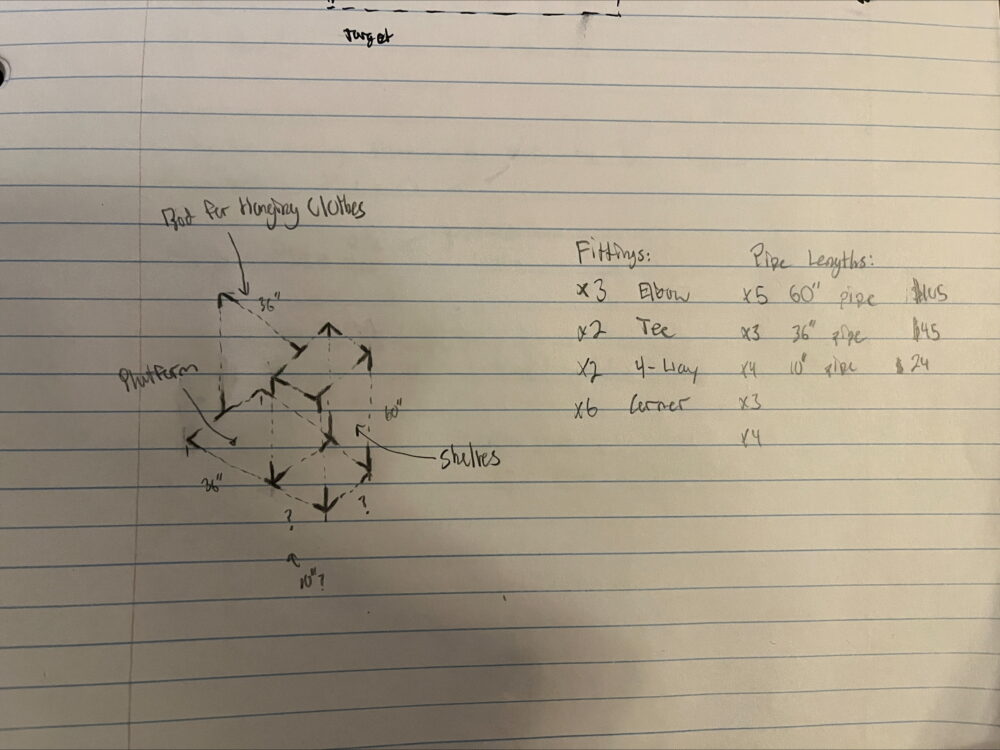 Target
Rod for Hanging Clothes
36"
Platform
60"
Shelves
36"
?
?
10"?
Fittings:
x3 Elbow
x2 Tee
x2 4-Way
x6 Corner
Pipe Lengths:
x5 60" pipe
x3 36" pipe $45
x4 10" pipe $24
x3
x4